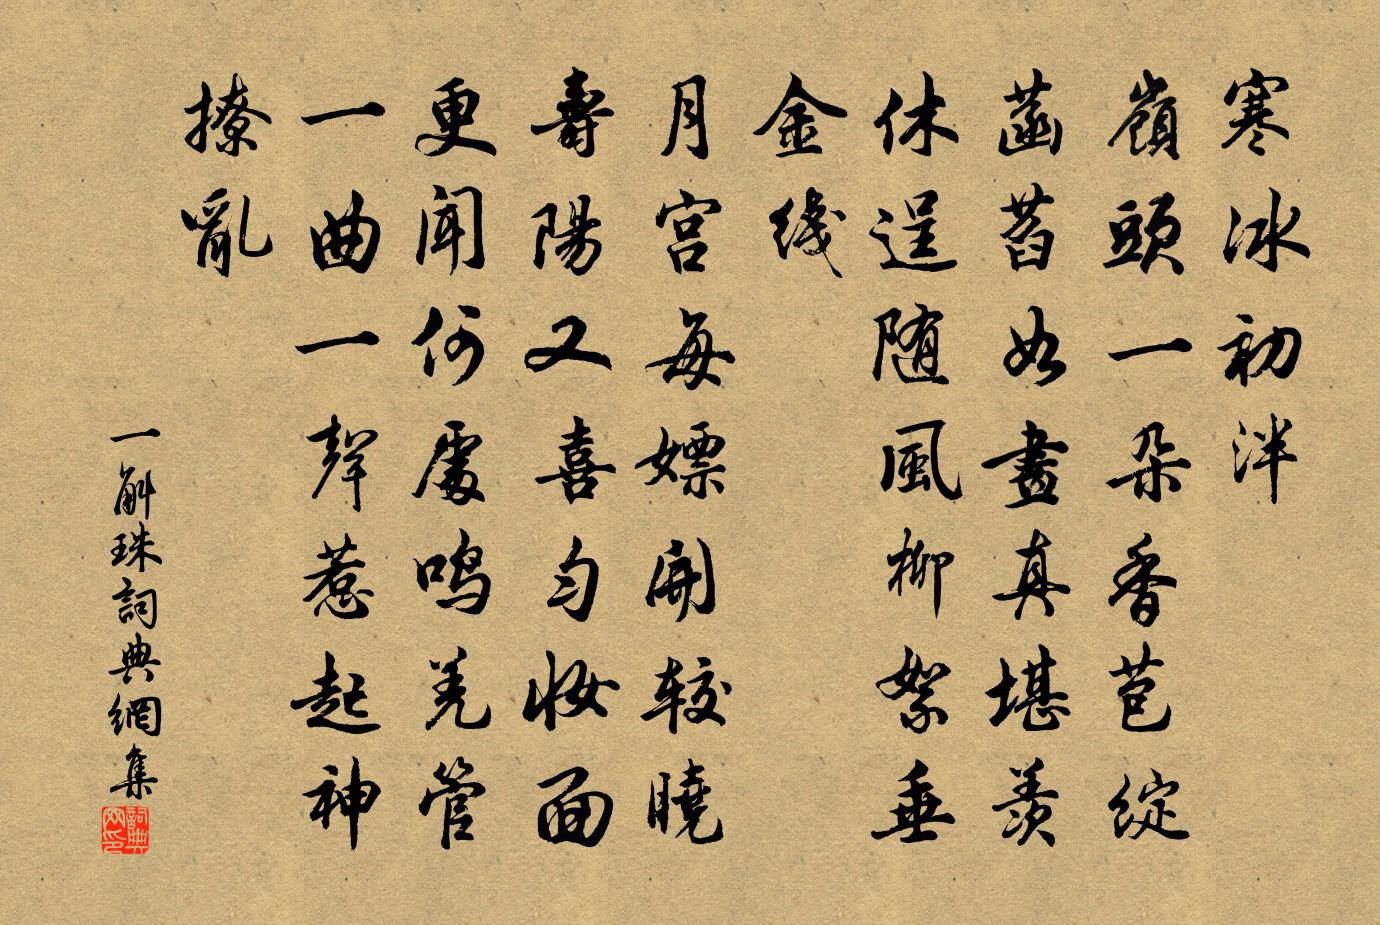 寒冰初泮
嶺頭一朵香苞綻
菡萏如畫真堪羨
休逞随風柳絮垂
金线
月宫每嫖開较曉
壽陽又喜匀妝面
更闻何處鸣羌管
一曲一聲惹起神
撩亂
一斛珠詞典網集
詞典
网印